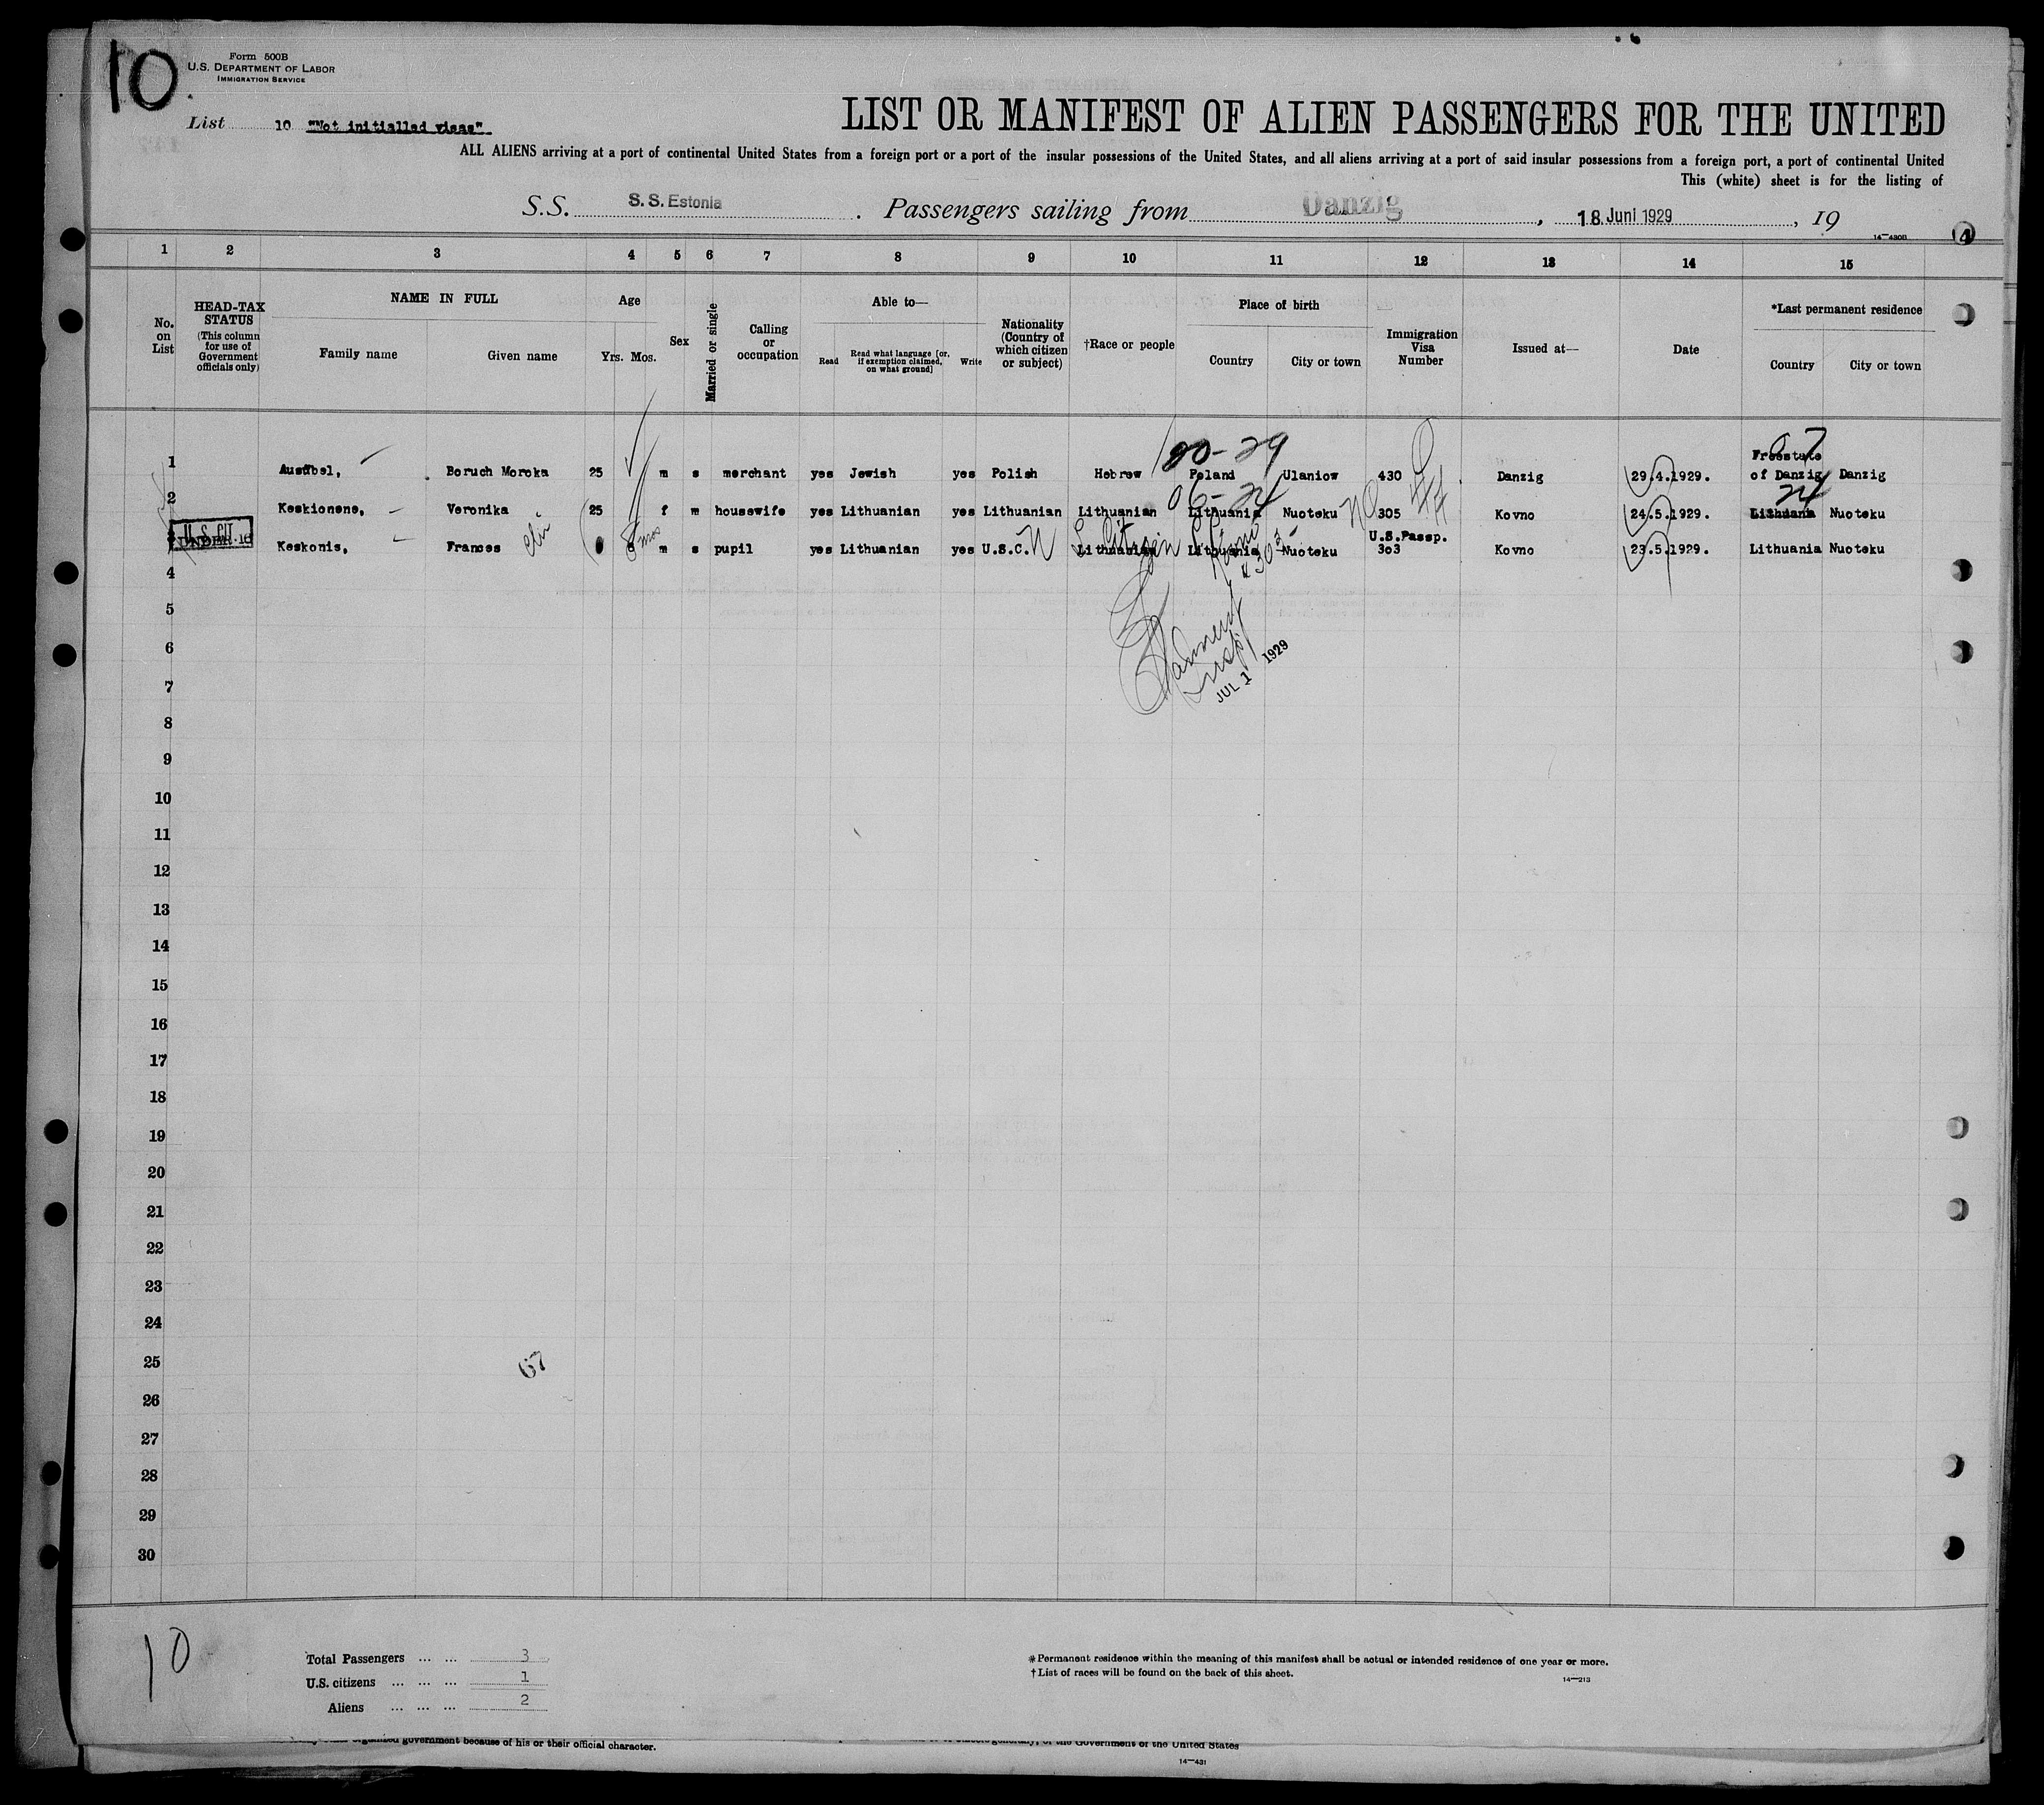 10
Form 500B
U.S. DEPARTMENT OF LABOR
IMMIGRATION SERVICE
List 10 "Not initialled visas"
LIST OR MANIFEST OF ALIEN PASSENGERS FOR THE UNITED
ALL ALIENS arriving at a port of continental United States from a foreign port or a port of the insular possessions of the United States, and all aliens arriving at a port of said insular possessions from a foreign port, a port of continental United
This (white) sheet is for the listing of
S.S. S.S. Estonia. Passengers sailing from Danzig, 18. Juni 1929, 19
14—430B
4
1 2 3 4 5 6 7 8 9 10 11 12 13 14 15
No. on List
HEAD-TAX STATUS (This column for use of Government officials only)
NAME IN FULL
Family name Given name
Age
Yrs. Mos.
Sex
Married or single
Calling or occupation
Able to—
Read Read what language [or, if exemption claimed, on what ground] Write
Nationality (Country of which citizen or subject)
†Race or people
Place of birth
Country City or town
Immigration Visa Number
Issued at—
Date
*Last permanent residence
Country City or town
20-29 07
1 Ausübel, Boruch Moroka 25 m s merchant yes Jewish yes Polish Hebrew Poland Ulaniow 430 Danzig 29.4.1929. Freestate of Danzig Danzig
06-24 24
2 Keskionene, Veronika 25 f m housewife yes Lithuanian yes Lithuanian Lithuanian Lithuania Nuoteku 305 Kovno 24.5.1929. Lithuania Nuoteku
U.S. CIT.
UNDER 16
3 Keskonis, Frances 8 mos m s pupil yes Lithuanian yes U.S.C. Lithuanian Lithuania Nuoteku U.S.Passp. 303 Kovno 23.5.1929. Lithuania Nuoteku
Citizen
Kovno
# 303
Insp
JUL 1 1929
4
5
6
7
8
9
10
11
12
13
14
15
16
17
18
19
20
21
22
23
24
25
67
26
27
28
29
30
10
Total Passengers ... ... 3
U.S. citizens ... ... ... 1
Aliens ... ... ... 2
*Permanent residence within the meaning of this manifest shall be actual or intended residence of one year or more.
†List of races will be found on the back of this sheet.
14—213
organized government because of his or their official character.
of the Government of the United States
14—431